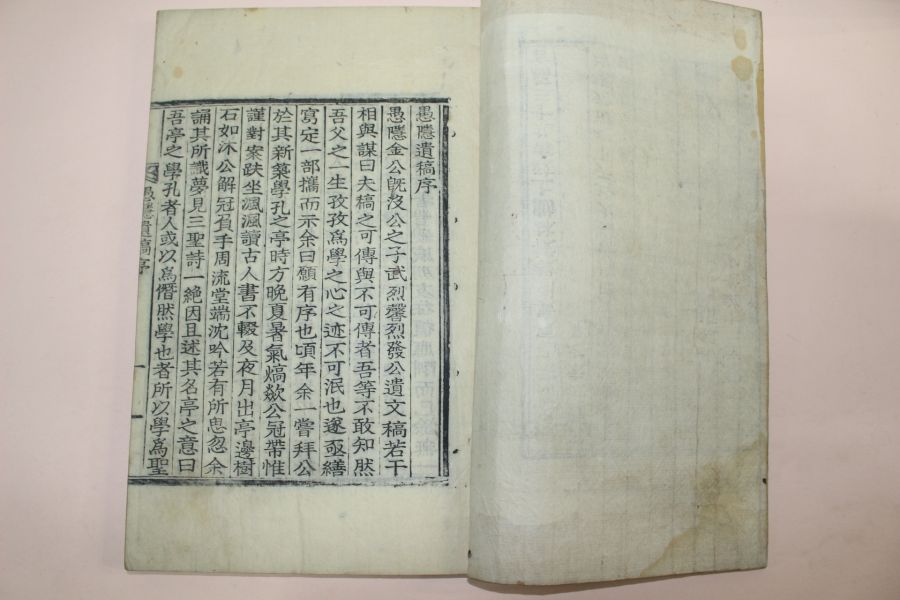 愚隱遺稿序
愚隱金公旣沒公之子武烈馨烈發公遺文稿若干
相與謀曰夫稿之可傳與不可傳者吾等不敢知然
吾父之一生孜孜爲學之心之迹不可泯也遂亟繕
寫定一部攜而示余曰願有序也頃年余一嘗拜公
於其新築學孔之亭時方晚夏暑氣熇歊公冠帶惟
謹對案趺坐渢渢讀古人書不輟及夜月出亭邊樹
石如沐公解冠負手周流堂端沈吟若有所思忽余
誦其所識夢見三聖詩一絶因且述其名亭之意曰
吾亭之學孔者人或以爲僭然學也者所以學爲聖
愚隱遺稿序
一